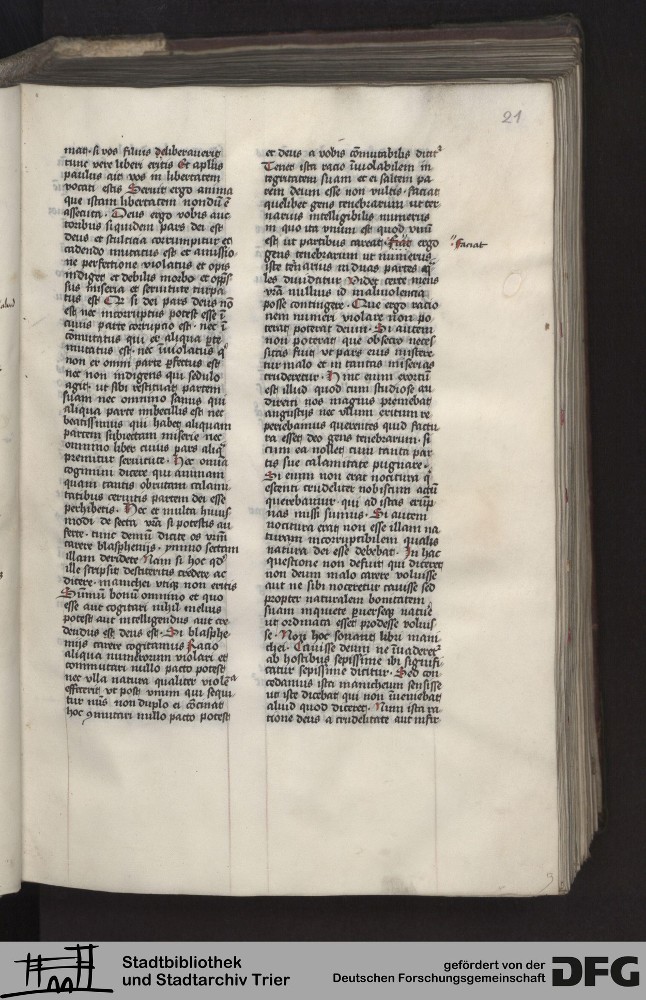 21
mat· si vos filius deliberauerit
tunc vere liberi eritis Et apl̄us
paulus ait vos in libertatem
vocati estis Seruit ergo anima
que istam libertatem nondū ē
assecuta · Deus ergo vobis auc
toribus siquidem pars dei est
deus et stulticia corrumpitur et
cadendo mutatus est et amissio
ne perfectione violatus et opis
indiget et debilis morbo et opp̄s
sus miseria et seruitute turpa
tus est Qr si dei pars deus nō
est nec incorruptus potest esse ī
cuius parte corrupcio est · nec ī
cōmutatus qui ex aliqua pte
mutatus est · nec īuiolatus q̄
non ex omni parte pfectus est
nec non indigens qui sedulo
agit ut sibi restituat partem
suam nec omnino sanus qui
aliqua parte imbecillis est nec
beatissimus qui habet aliquam
partem subiectam miserie nec
omnino liber cuius pars aliq̄
premitur seruitute · Hec omīa
cogimini dicere qui animam
quam tantis obrutam calami
tatibus cernitis partem dei esse
perhibetis · Hec et multa huius
modi de secta vr̄a si potestis au
ferre · tunc demū dicite os vr̄m
carere blasphemijs · ymmo sectam
illam deridete Nam si hoc qd̄
ille scripsit destiteritis credere ac
dicere · manichei vtiq̄ non eritis
Sūmū bonū omnino et quo
esse aut cogitari nihil melius
potest aut intelligendus aut cre
dendus est deus est · Si blasphe
mijs carere cogitamus Racio
aliqua numerorum violari et
commutari nullo pacto potest
nec vlla natura qualiter violēa
effecerit ut post vnum qui sequi
tur nūs non duplo ei cōcinat
hoc ɔmutari nullo pacto potest
et deus a vobis cōmutabilis dicit
Tenet ista racio īuiolabilem in
tegritatem suam et ei saltem pa
rem deum esse non vultis · faciat
quelibet gens tenebrarum ut ter
narius intelligibilis numerus
in quo ita vnum est quod vnū
est ut partibus careat · fiat ergo
gens tenebrarum ut numerus
iste tenarius in duas partes eq̄
les diuidatur Videt certe mens
vr̄a nullius id maliuolencia
posse contingere · Que ergo racio
nem numeri violare non po
terat poterat deum · Si autem
non poterat que obsecro neces
sitas fuit vt pars eius miscere
tur malo et in tantas miserias
truderetur · Hinc enim exortū
est illud quod cum studiose au
diremus nos magnis premebat
angustijs nec vllum exitum re
periebamus querentes quid factu
ra esset deo gens tenebrarum · si
cum ea nollet cum tanta par
tis sue calamitate pugnare ·
Si enim non erat nocitura q̄
escenti crudeliter nobiscum actū
querebamur · qui ad istas erūp
nas missi sumus · Si autem
nocitura erat non esse illam na
turam incorruptibilem qualis
natura dei esse debebat · In hac
questione non defuit qui diceret
non deum malo carere voluisse
aut ne sibi noceretur cauisse sed
propter naturalem bonitatem
suam inquiete puerseq̄ nature
ut ordinata esset prodesse voluis
se · Non hoc sonant libri mani
chei · Cauisse deum ne inuaderet
ab hostibus sepissime ibi signifi
catur sepissime dicitur · Sed con
cedamus ista manicheum sensisse
ut iste dicebat qui non inueniebat
aliud quod diceret · Num ista ra
tione deus a crudelitate aut infir
·· faciat
Stadtbibliothek
und Stadtarchiv Trier
gefördert von der
Deutschen Forschungsgemeinschaft
DFG